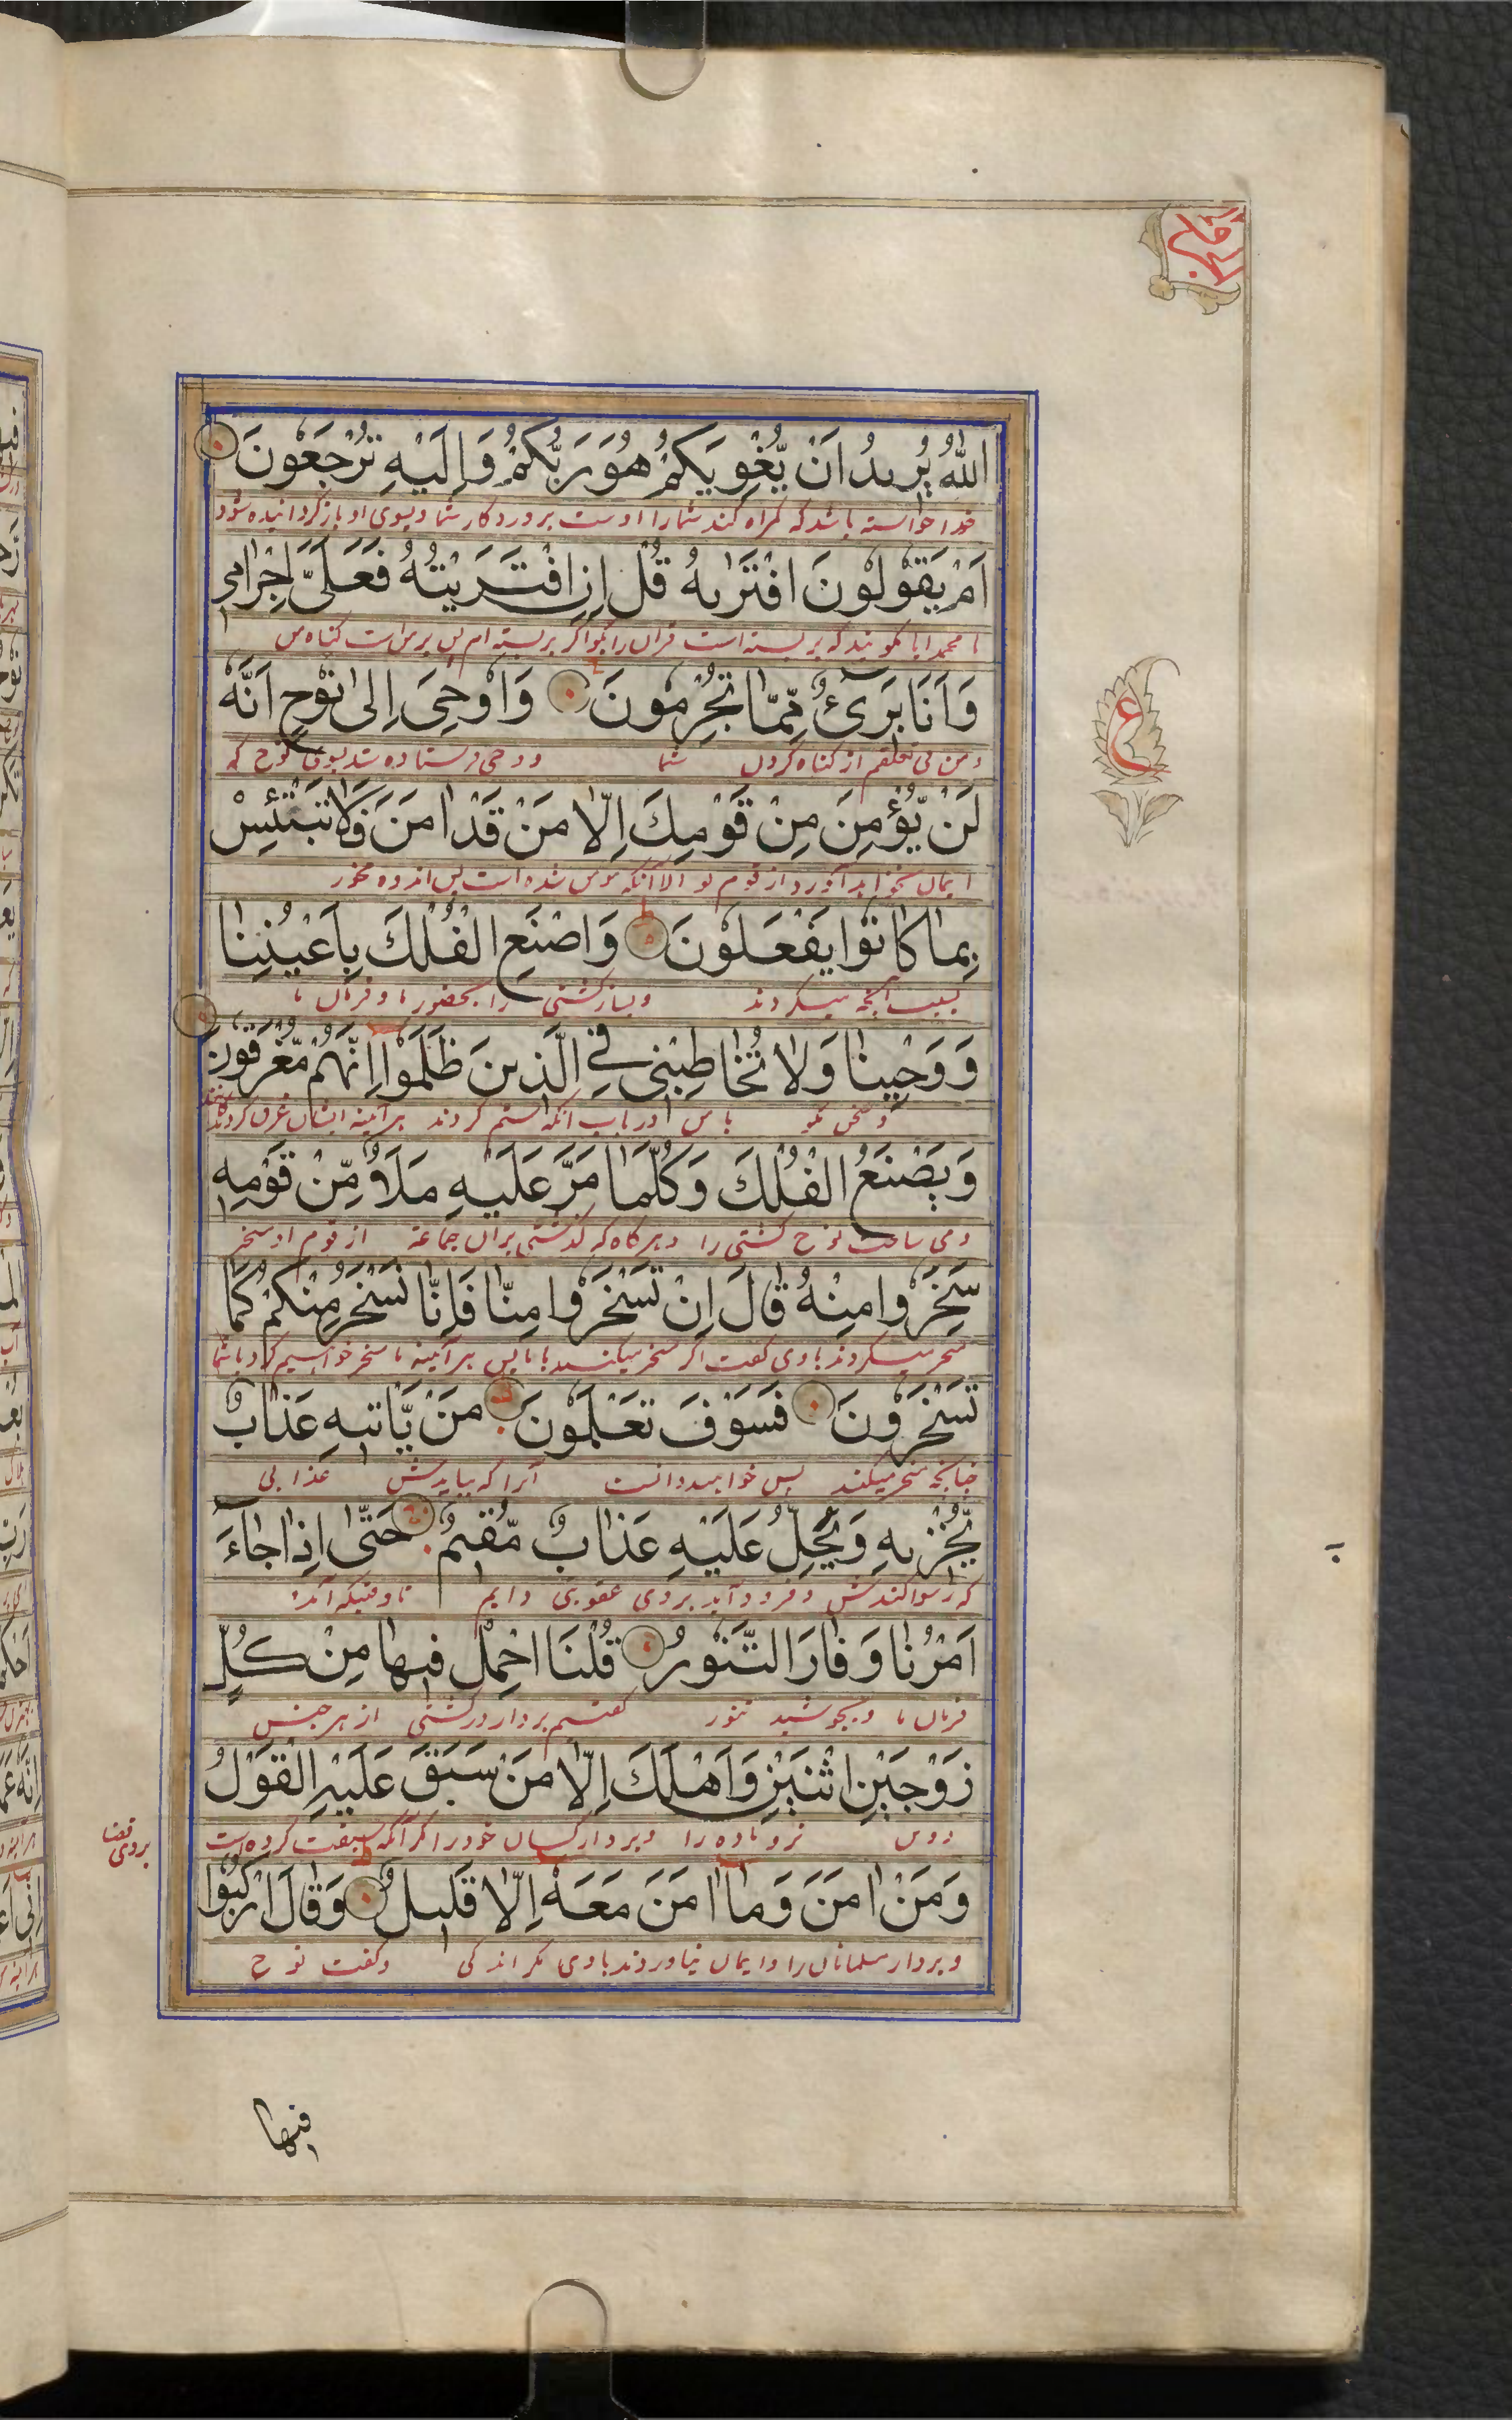 اللّٰهُ يُرِيدُ اَنْ يُّغْوِيَكُمْ هُوَ رَبُّكُمْ وَاِلَيْهِ تُرْجَعُونَ
خدا خواسته باشد که گمراه کند شما را اوست پروردگار شما و بسوی او باز گردانیده شود
اَمْ يَقُولُونَ افْتَرٰىهُ قُلْ اِنِ افْتَرَيْتُهُ فَعَلَىَّ اِجْرَامِى
یا محمد ایا میگویند که بر بسته است قران را بگو اگر بر بسته ام پس بر من است گناه من
وَاَنَا بَرِىْٓءٌ مِّمَّا تُجْرِمُونَ وَاُوحِىَ اِلٰى نُوْحٍ اَنَّهٗ
و من بی تعلقم از گناه کردن شما و وحی فرستاده شد بسوی نوح که
لَنْ يُّؤْمِنَ مِنْ قَوْمِكَ اِلَّا مَنْ قَدْ اٰمَنَ فَلَا تَبْتَئِسْ
ایمان نخواهد آورد از قوم تو الا آنکه مومن شده است پس اندوه مخور
بِمَا كَانُوْا يَفْعَلُوْنَ وَاصْنَعِ الْفُلْكَ بِاَعْيُنِنَا
بسبب آنچه میکردند و بساز کشتی را بحضور ما و فرمان ما
وَوَحْيِنَا وَلَا تُخَاطِبْنِى فِى الَّذِينَ ظَلَمُوْا اِنَّهُمْ مُّغْرَقُونَ
و سخن مگو با من در باب انکه ستم کردند هر آئینه ایشان غرق کردگانند
وَيَصْنَعُ الْفُلْكَ وَكُلَّمَا مَرَّ عَلَيْهِ مَلَاٌ مِّنْ قَوْمِهِ
و می ساخت نوح کشتی را و هر گاه که گذشتی بران جماعة از قوم او سخر
سَخِرُوا مِنْهُ قَالَ اِنْ تَسْخَرُوا مِنَّا فَاِنَّا نَسْخَرُ مِنْكُمْ كَمَا
سخر میکردند باوی گفت اگر سخر میکنید با ما پس هر آئینه ما سخر خواهیم کرد با شما
تَسْخَرُونَ فَسَوْفَ تَعْلَمُونَ مَنْ يَّاْتِيهِ عَذَابٌ
چنانچه سخر میکنید پس خواهید دانست آنرا که بیایدش عذابی
يُّخْزِيهِ وَيَحِلُّ عَلَيْهِ عَذَابٌ مُّقِيمٌ حَتّٰى اِذَا جَاءَ
که رسوا کندش و فرود آید بروی عقوبتی دایم تا وقتیکه آمد
اَمْرُنَا وَفَارَ التَّنُّورُ قُلْنَا احْمِلْ فِيهَا مِنْ كُلٍّ
فرمان ما و بجوشید تنور گفتیم بردار در کشتی از هر جنس
زَوْجَيْنِ اثْنَيْنِ وَاَهْلَكَ اِلَّا مَنْ سَبَقَ عَلَيْهِ الْقَوْلُ
نر و ماده را و بردار کسان خود را مگر آنکه سبقت کرده است
بروی قضا
وَمَنْ اٰمَنَ وَمَا اٰمَنَ مَعَهٗ اِلَّا قَلِيلٌ وَقَالَ ارْكَبُوْا
و بردار مسلمانان را و ایمان نیاوردند باوی مگر اندکی و گفت نوح
ع
فیها